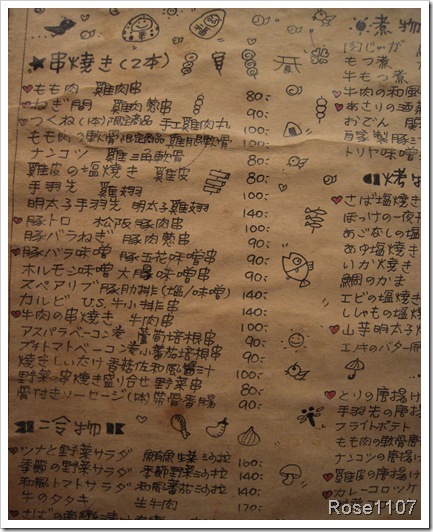 ★串焼き(2本)
もも肉 雞肉串 80:
ねぎ間 雞肉蔥串 90:
つくね(1本)限定商品 手工雞肉丸 100:
もも肉軟骨限定商品 雞腿軟骨 100:
ナンコツ 雞三角軟骨 90:
雞皮の塩焼き 雞皮 80:
手羽先 雞翅 100:
明太子手羽先 明太子雞翅 140:
豚トロ 松阪豚肉串 90:
豚バラねぎ 豚肉蔥串 90:
豚バラ味噌 豚五花味噌串 90:
ホルモン味噌 大腸味噌串 90:
スペアリブ 豚肋排(塩/味噌) 140:
カルビ U.S.牛小排串 140:
牛肉の串焼き 牛肉串 100:
アスパラベーコン巻 蘆筍培根串 90:
プチトマトベーコン巻 小蕃茄培根串 90:
焼きしいたけ 香菇佐和風醬汁
野菜の串焼き盛り合せ 野菜串
骨付きソーセージ(1本)帶骨香腸 90:
冷物
ツナと野菜サラダ 鮪魚生菜沙拉 160:
季節の野菜サラダ 季節野菜沙拉 140:
和風トマトサラダ 和風蕃茄沙拉 140:
牛のタタキ 生牛肉 170:
煮物
肉じゃが
もつ煮
牛もつ煮
牛肉の和風
あさりの酒
おでん
自家製豚
トリヤ味噌
さば塩焼
ほっけの一夜
あごなしの塩
あゆ塩焼き
いか焼き
鯛のかま
エビの塩焼き
ししゃもの塩焼
山芋明太子
エノキのバター
とりの唐揚げ
手羽先の唐
フライドポテト
もも肉の軟骨
ナンコツの唐揚
雞皮の唐揚げ
カレーコロッケ
Rose1107